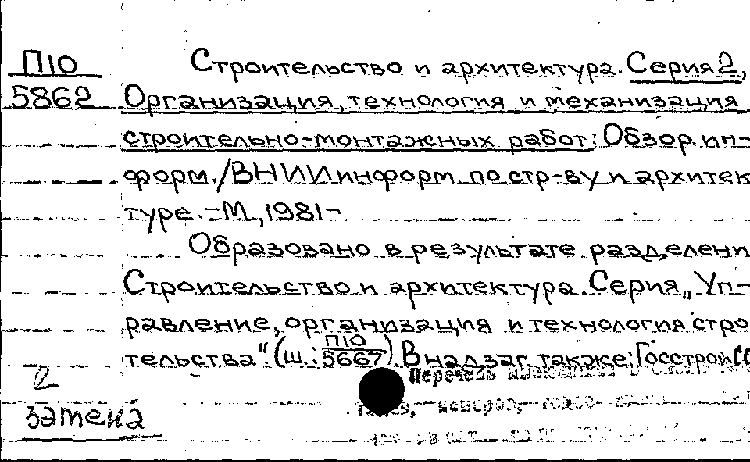 П10
5862
Строительство и архитектура. Серия 2,
Организация, технология и механизация
строительно-монтажных работ: Обзор. ин-
форм./ВНИИинформ. по стр-ву и архитек
туре. -М., 1981-
Образовано в результате разделени
Строительство и архитектура. Серия „Уп-
равление, организация и технология стро
тельства" (ш.: П10/5667). В надзаг. также: Госстрой СС
Перечень
2
затена